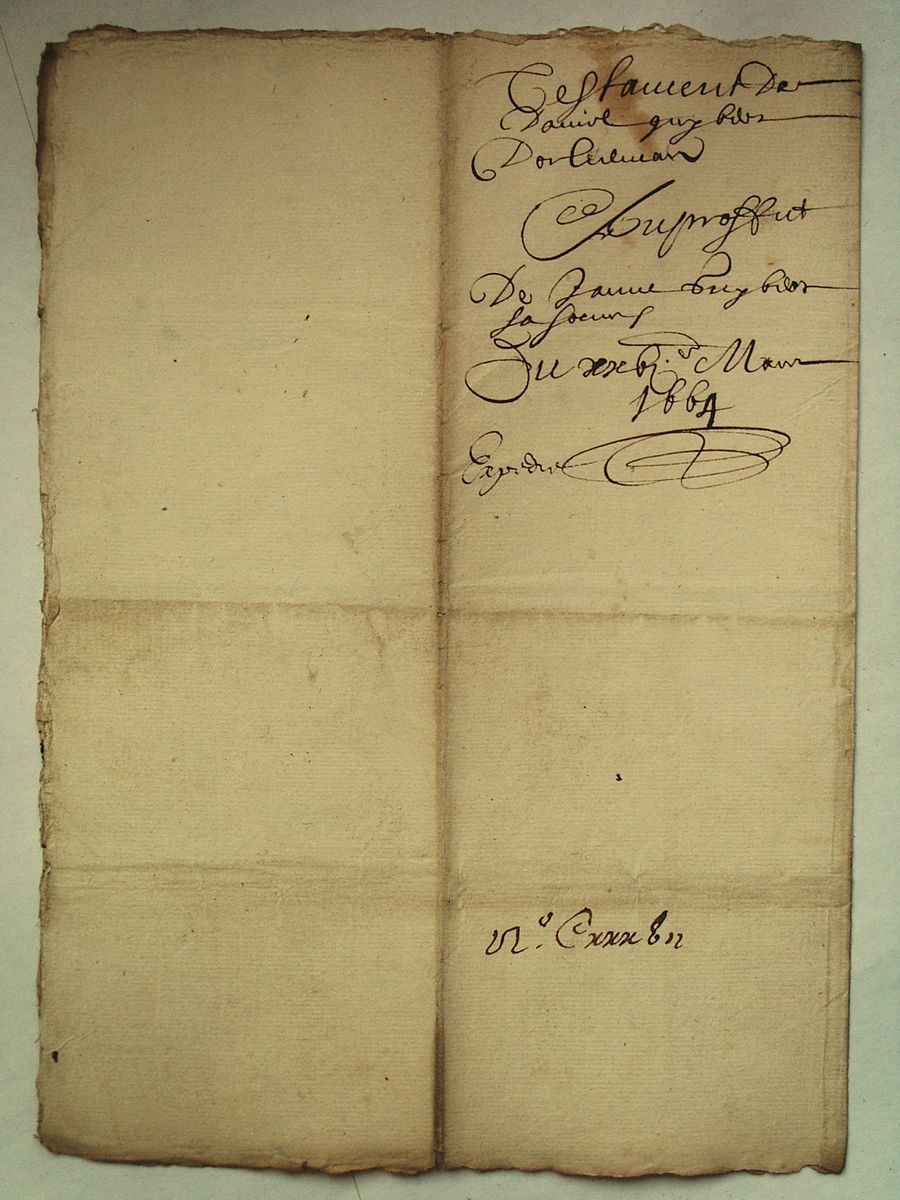 Testament de
Daniel guybert
Au proffict
De Janne Guybert
sa soeur
Du xxvj.e Mars
1664
Expedié
N°. Cxxxvii